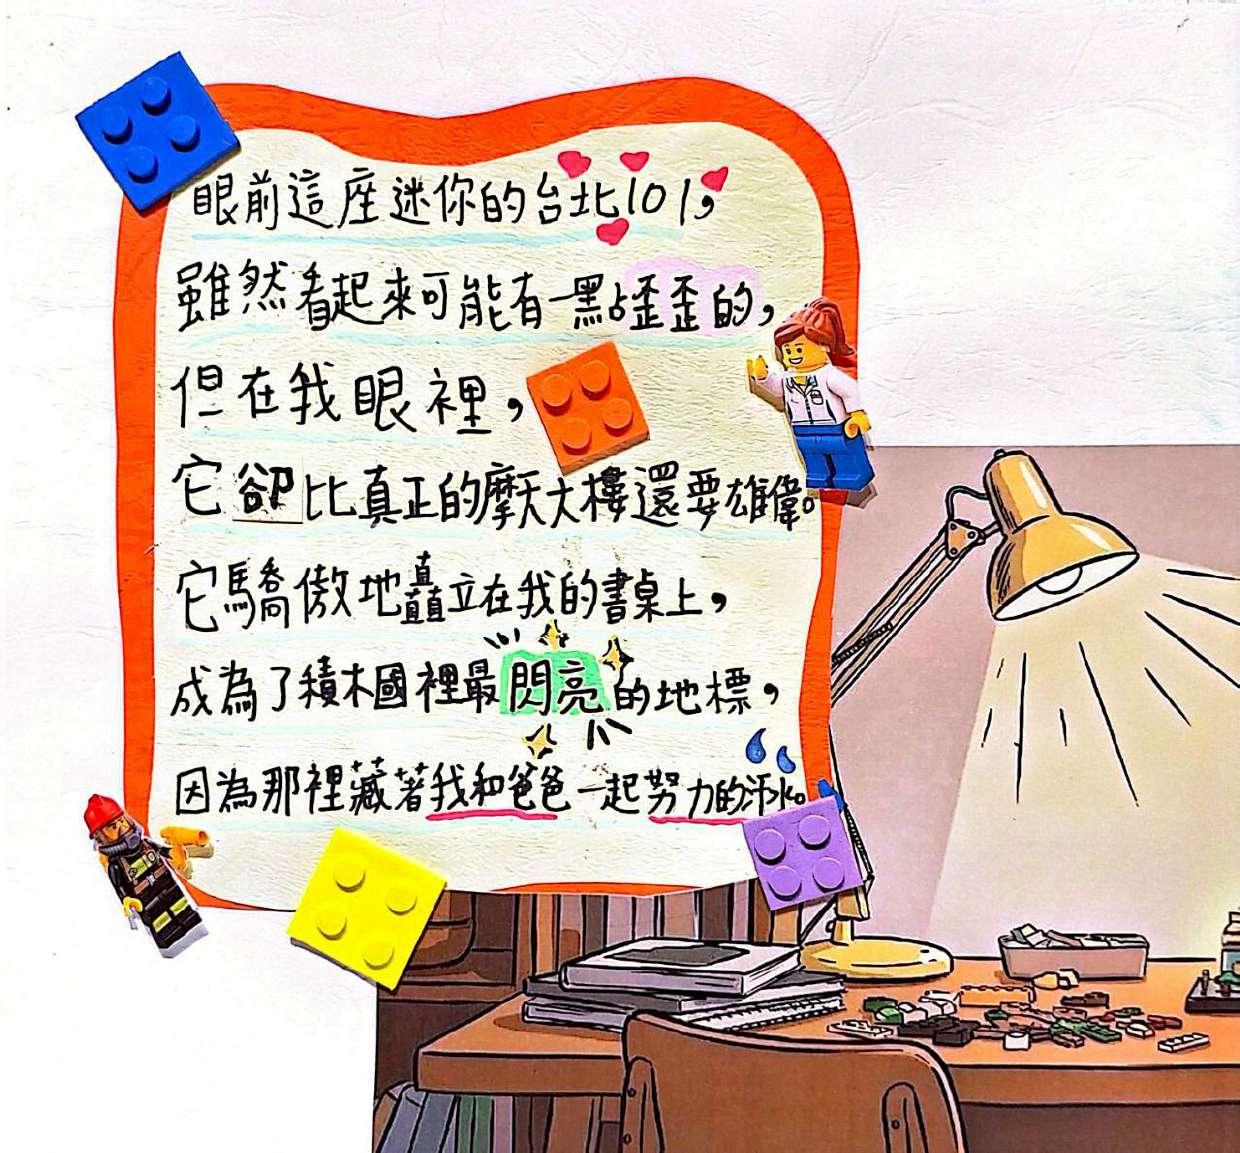 眼前這座迷你的台北101，
雖然看起來可能有一點歪歪的，
但在我眼裡，
它卻比真正的摩天大樓還要雄偉。
它驕傲地矗立在我的書桌上，
成為了積木國裡最閃亮的地標，
因為那裡藏著我和爸爸一起努力的汗水。